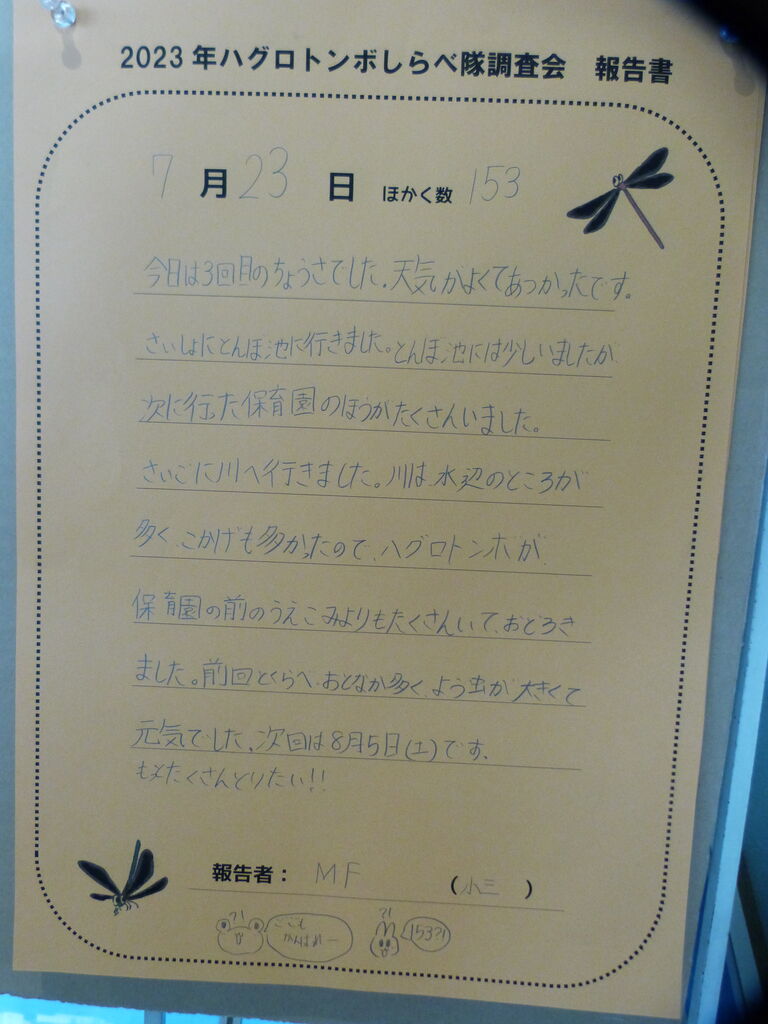 2023年ハグロトンボしらべ隊調査会 報告書
7月23日 ほかく数 153
今日は3回目のちょうさでした。天気がよくてあつかったです。
さいしょにとんぼ池に行きました。とんぼ池には少しいましたが
次に行った保育園のほうがたくさんいました。
さいごに川へ行きました。川は、水辺のところが
多く、こかげも多かったので、ハグロトンボが、
保育園の前のうえこみよりもたくさんいて、おどろき
ました。前回とくらべ、おとなが多く、よう虫が大きくて
元気でした。次回は8月5日(土)です。
もっとたくさんとりたい!!
報告者: MF (小三)
?! ?!
がんばれー 153?!